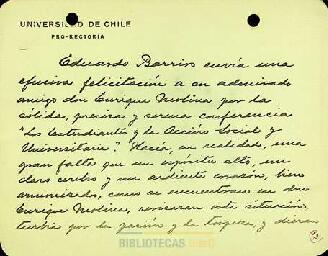 UNIVERSIDAD DE CHILE
PRO-RECTORIA
Eduardo Barrios envía una
efusiva felicitación a su admirado
amigo don Enrique Molina por la
sólida, precisa y serena conferencia
"Los Estudiantes y la Acción Social y
Universitaria". Hacía, en realidad, una
gran falta que un espíritu alto, un
claro cerebro y un ardiente corazón, bien
armonizados, como se encuentran en don
Enrique Molina, vinieran esta situación
turbia por la pasión y la torpeza, y dieran
BIBLIOTECAS